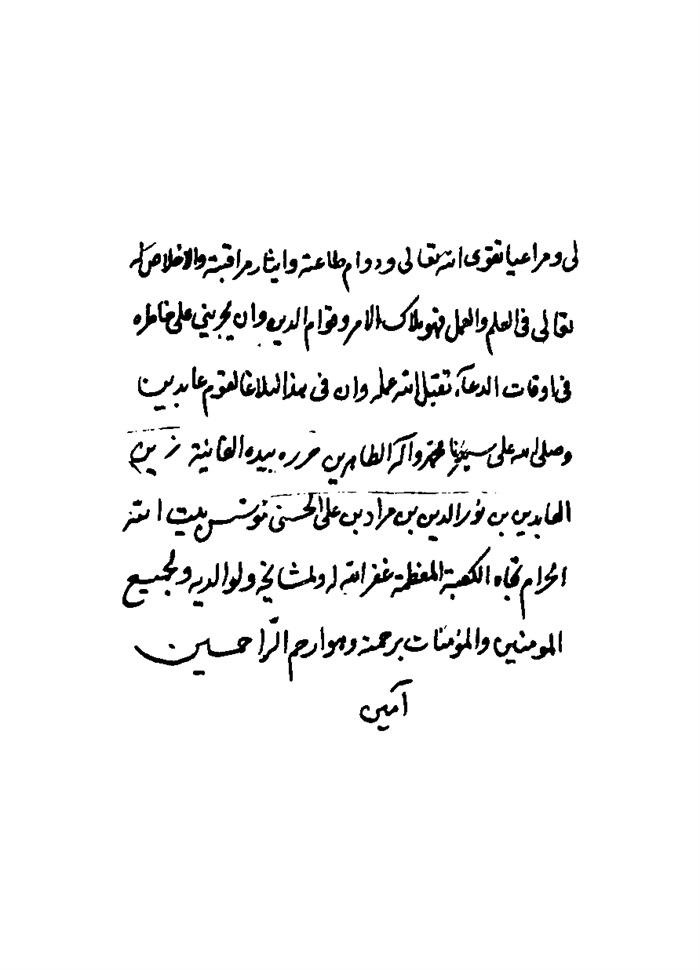 لى ومراعيا تقوى الله تعالى ودوام طاعته وايثار مراقبته والاخلاص له
تعالى فى العلم والعمل فهو ملاك الامر وقوام الدين وان يجريني على خاطره
فى اوقات الدعآء تقبل الله عمله وان فى هذا لبلاغا لقوم عابدين
وصلى الله على سيدنا محمد واله الطاهرين حرره بيده الفانية زين
العابدين بن نور الدين بن مراد بن على الحسنى مؤسس بيت الله
الحرام تجاه الكعبة المعظمة غفر الله له ولمشايخه ولوالديه ولجميع
المومنين والمؤمنات برحمته وهو ارحم الرّاحمين
آمين